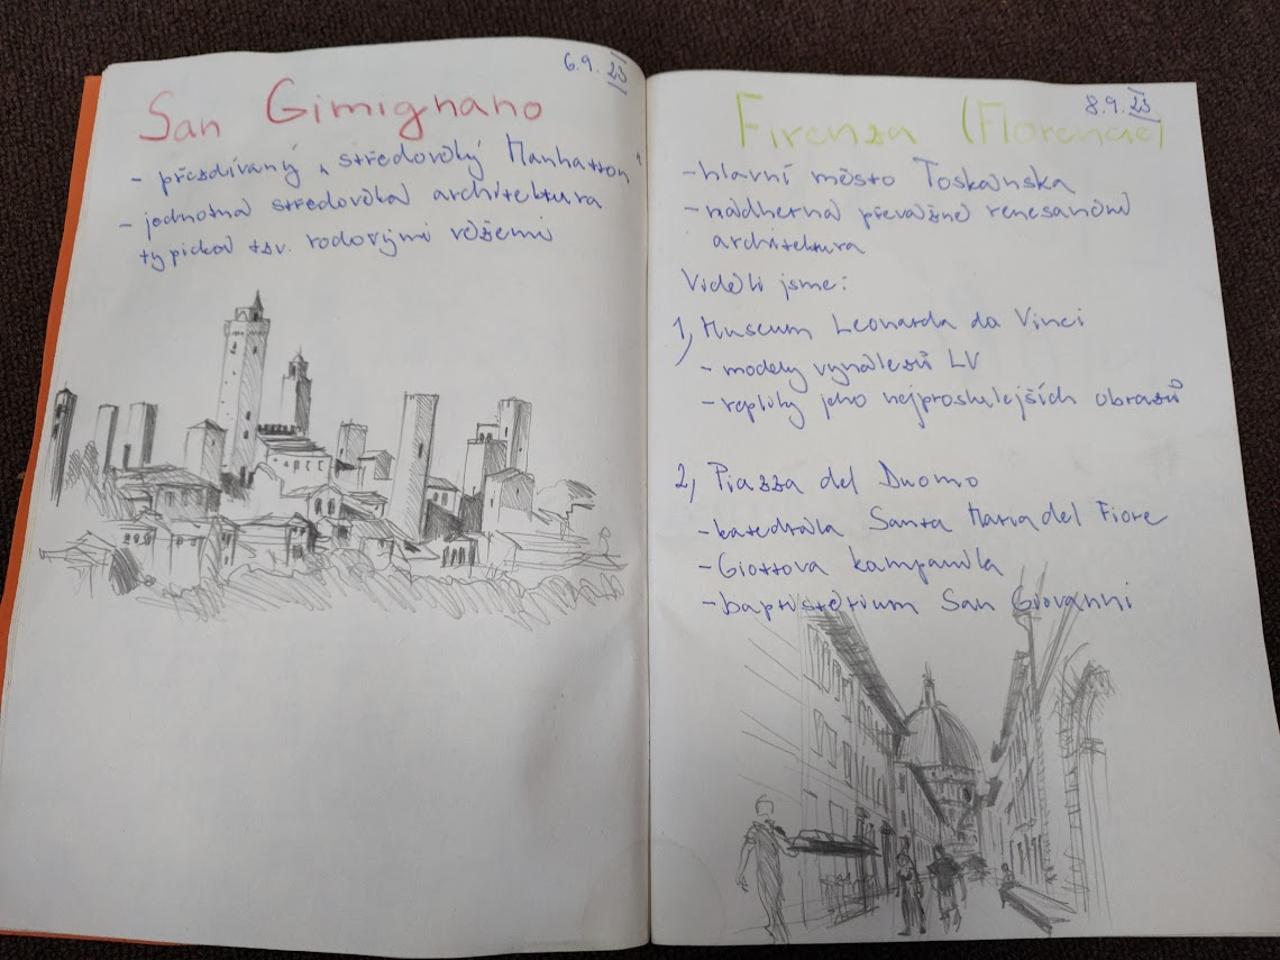 6.9.23
San Gimignano
- přezdívaný „středověký Manhattan"
- jednotná středověká architektura
typická tzv. rodovými věžemi
8.9.23
Firenza (Florencie)
- hlavní město Toskánska
- nádherná převážně renesanční
architektura
Viděli jsme:
1, Museum Leonarda da Vinci
- modely vynálezů LV
- repliky jeho nejproslulejších obrazů
2, Piazza del Duomo
- katedrála Santa Maria del Fiore
- Giottova kampanila
- baptisterium San Giovanni